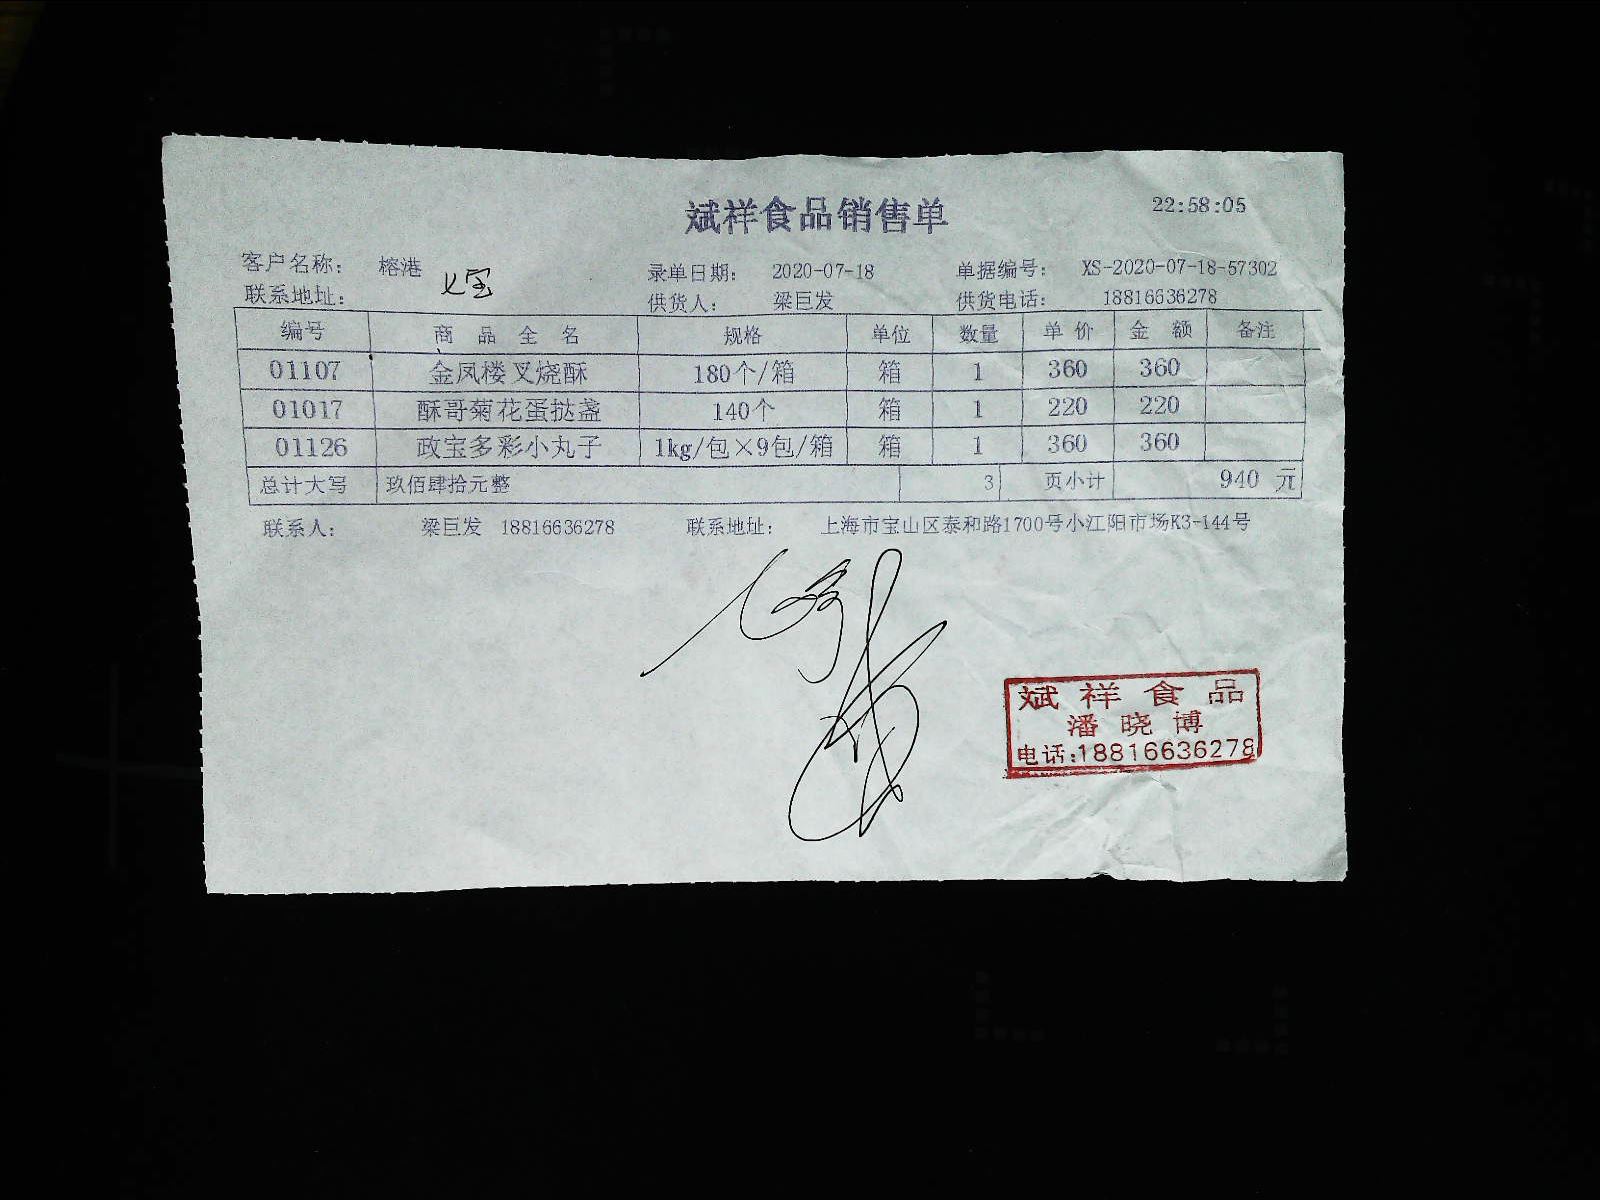 斌祥食品销售单 22:58:05
客户名称： 榕港 录单日期： 2020-07-18 单据编号： XS-2020-07-18-57302
联系地址： 七宝 供货人： 梁巨发 供货电话： 18816636278
编号 商品全名 规格 单位 数量 单价 金额 备注
01107 金凤楼叉烧酥 180个/箱 箱 1 360 360
01017 酥哥菊花蛋挞盏 140个 箱 1 220 220
01126 政宝多彩小丸子 1kg/包×9包/箱 箱 1 360 360
总计大写 玖佰肆拾元整 3 页小计 940 元
联系人： 梁巨发 18816636278 联系地址： 上海市宝山区泰和路1700号小江阳市场K3-144号
斌祥食品
潘晓博
电话:18816636278